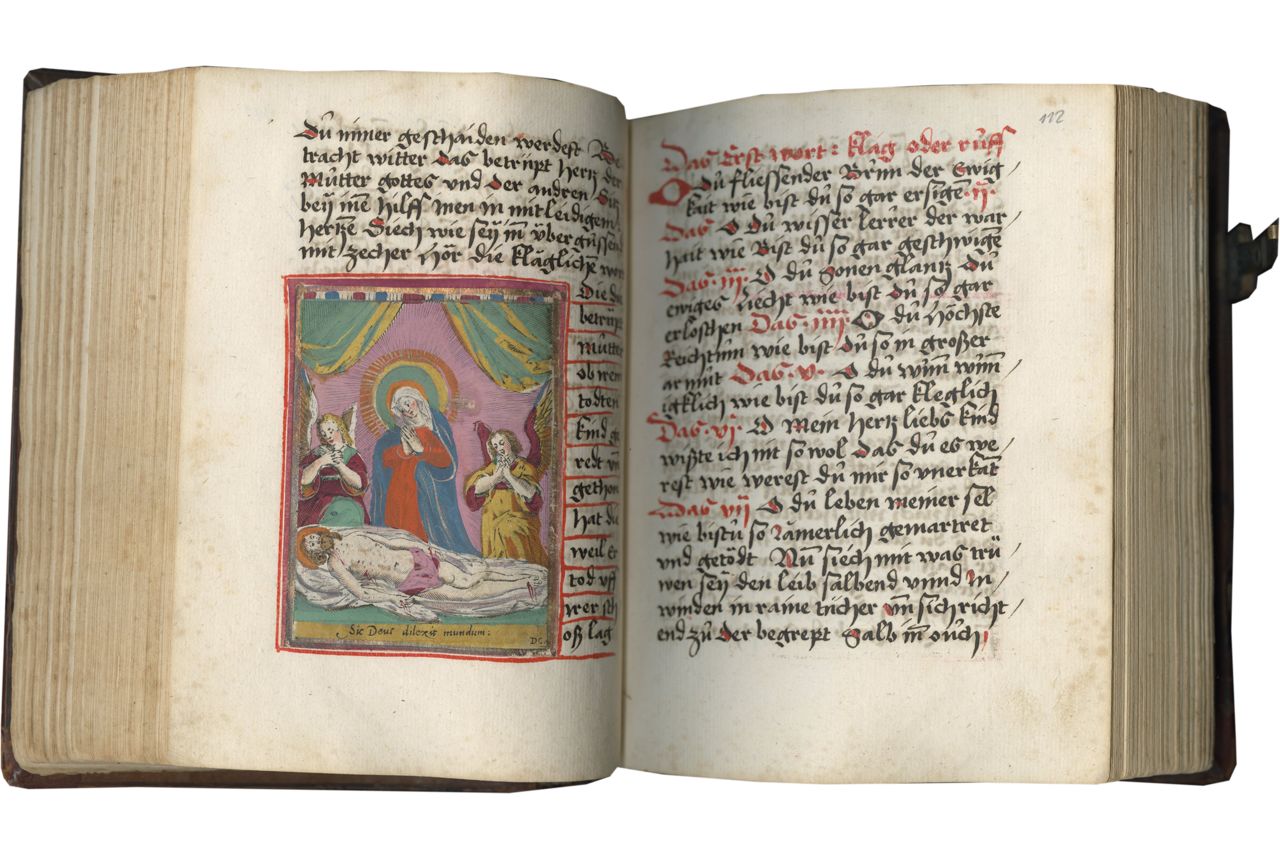 dů nimer geschaiden werdest Be
tracht witter das betrüpt hertz der
Můtter gottes und der andren
beÿ ime hilff men in mitleidigem
hertze Siech wie seÿ in übergüssend
mit zecher hör die klaglichen wort
Die du
betrüpt
mütter
ob wem
todten
kind ge
redt vn
gethon
hat die
weil Er
tod vff
irer sch
oß lag
Sic Deus dilexit mundum:
DC.
112
Das Erst wort: klag oder růff
O dů fliessender Brun der Ewig
kait wie bist dů so gar ersigen ·ij·
Das O Dů wisser lerrer der war
hait wie Bist dů so gar geschwigē
Das ·iij· O dů Sonen glantz dů
ewiges liecht wie bist dů so gar
erloschen Das ·iiij· O dů höchste
Reichtum wie bist dů so in großer
armůt Das ·v· O dů wum wim
igklich wie bist dů so gar kleglich
Das ·vj· O Mein hertz liebs kind
wißte ich nit so wol Das dů es we
rest wie werest dů mir so vnerkāt
Das vij O dů leben meiner sel
wie bistu so Jämerlich gemartret
vnd getödt Nun siech mit was trü
wen seÿ den leib salbend vnnd In
winden in raine tücher vn sich richt
end zů der begrept Salb in ouch